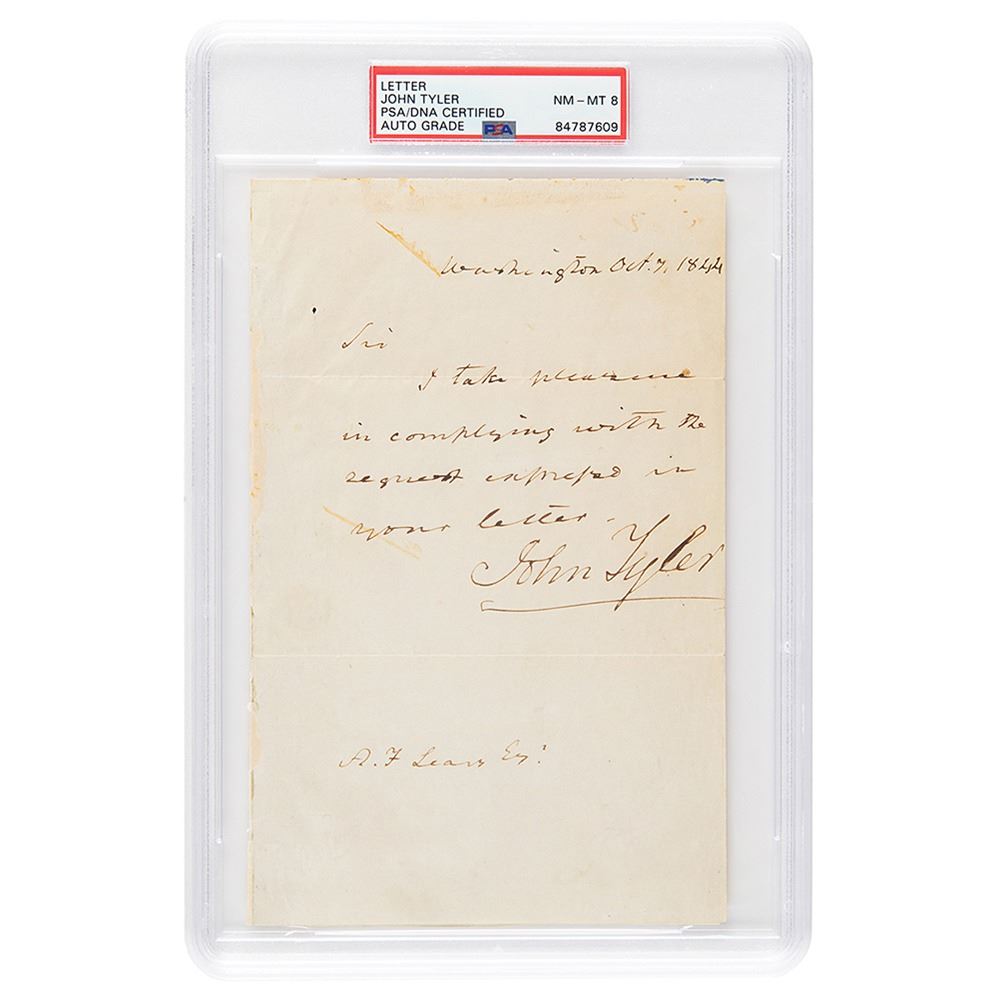 LETTER
JOHN TYLER NM - MT 8
PSA/DNA CERTIFIED
AUTO GRADE PSA 84787609
Washington Oct. 7, 1844
Sir
I take pleasure
in complying with the
request expressed in
your letter.
John Tyler
A. F. Leary Esq.